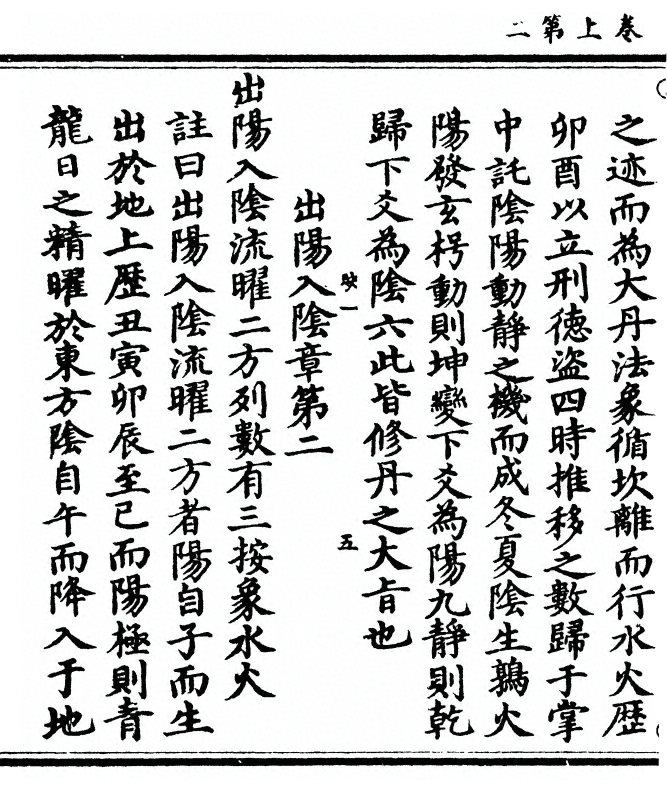 卷上第二
之迹而為大丹法象循坎離而行水火歷
卯酉以立刑德盜四時推移之數歸于掌
中託陰陽動靜之機而成冬夏陰生鶉火
陽發玄枵動則坤變下爻為陽九靜則乾
歸下爻為陰六此皆修丹之大旨也
映一
五
出陽入陰章第二
出陽入陰流曜二方列數有三按象水火
註曰出陽入陰流曜二方者陽自子而生
出於地上歷丑寅卯辰至巳而陽極則青
龍日之精曜於東方陰自午而降入于地